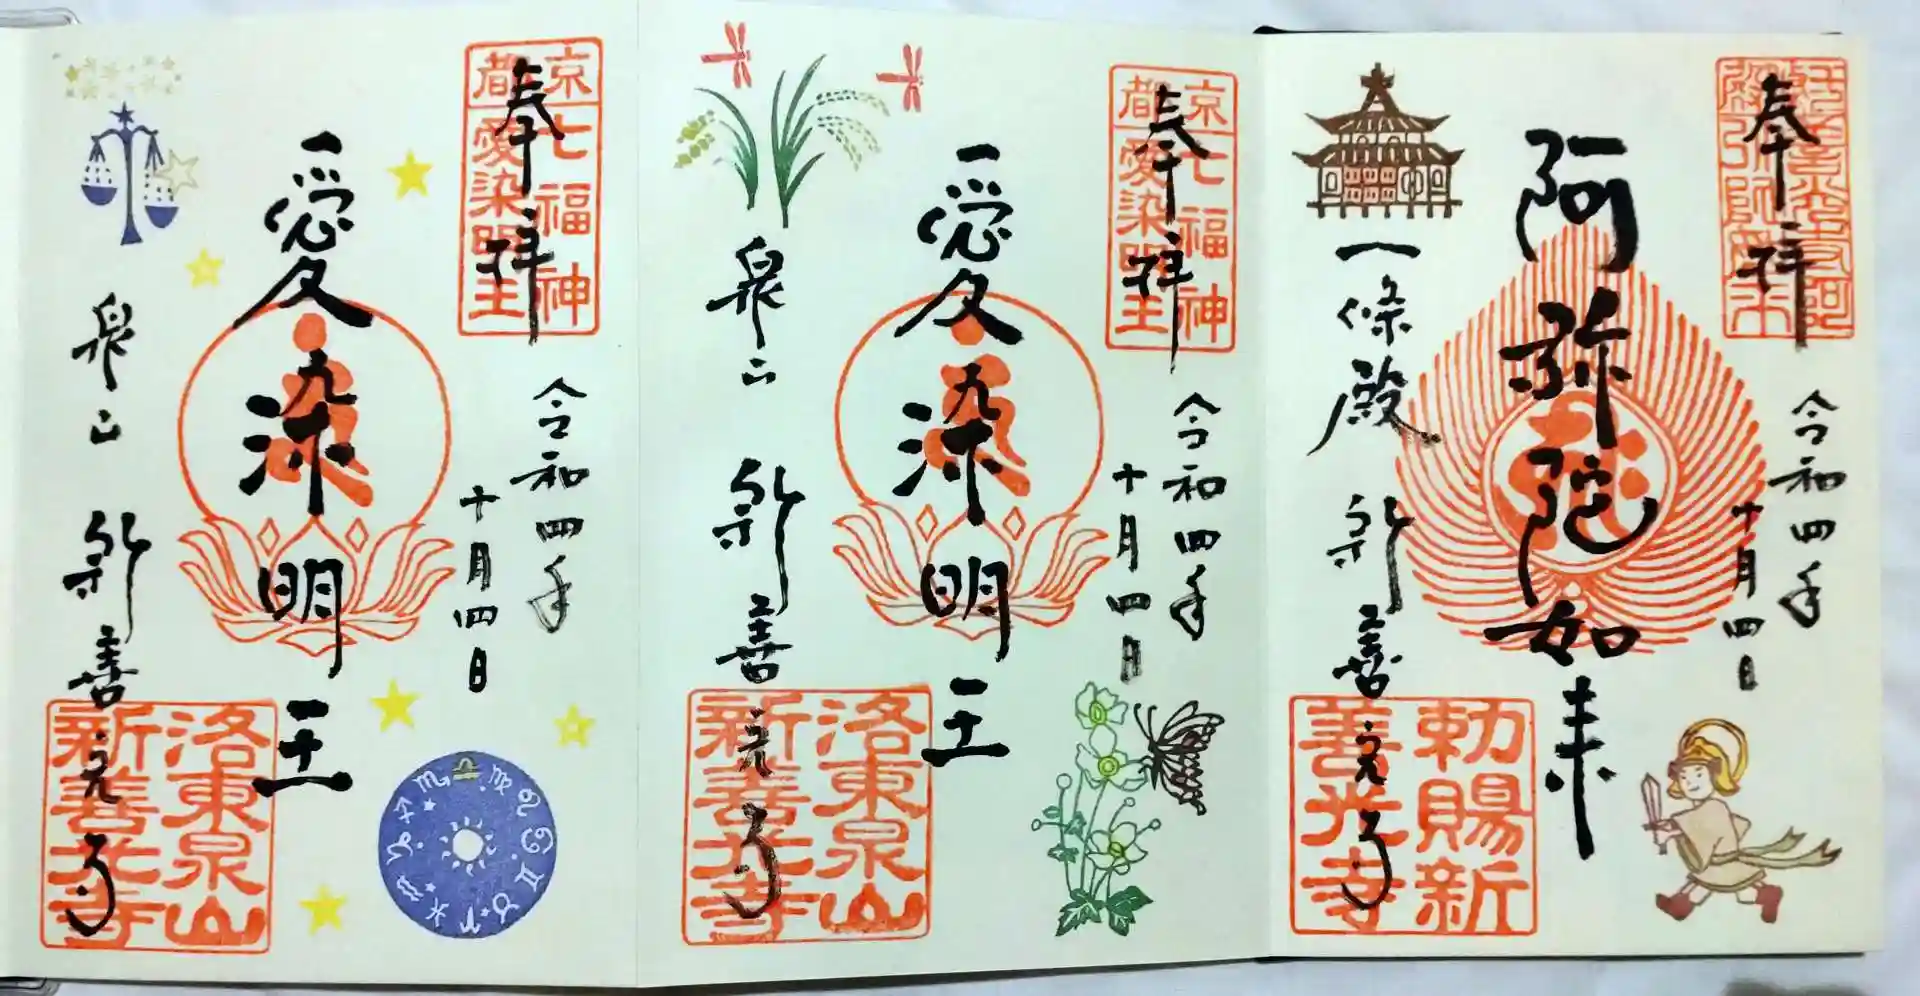 奉拝
京都七福神
愛染明王
令和四年
十月四日
愛染明王
泉山
新善光寺
洛東泉山
新善光寺
奉拝
京都七福神
愛染明王
令和四年
十月四日
愛染明王
泉山
新善光寺
洛東泉山
新善光寺
奉拝
令和四年
十月四日
阿弥陀如来
一條殿
新善光寺
勅賜新
善光寺